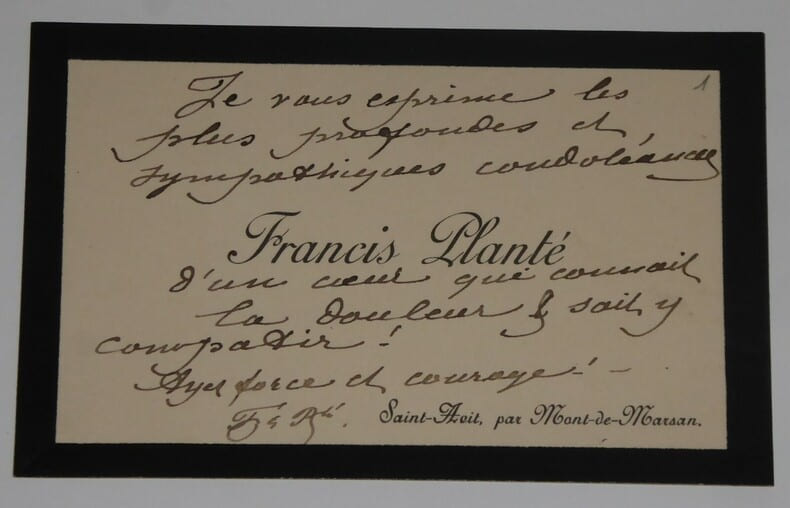 1
Je vous exprime les
plus profondes et
sympathiques condoléances
Francis Planté
d'un cœur qui connait
la douleur & sait y
compatir !
Ayez force et courage ! -
Saint-Avit, par Mont-de-Marsan.